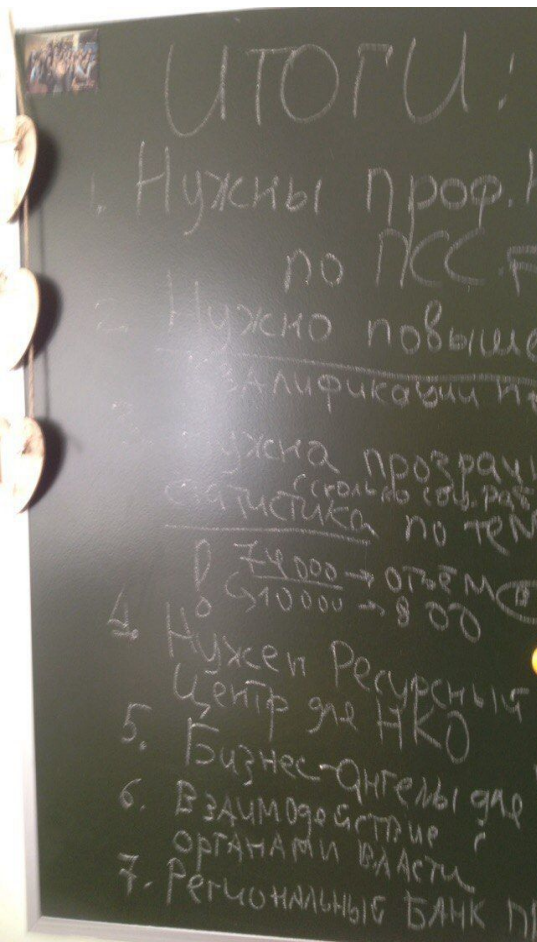 ИТОГИ:
1. Нужны проф.
по ПСС
2. Нужно повыше
квалификации
3. Нужна прозрачн
(сколько соц. раб
статистика по тем
74000 → отъём
↳ 10000 → 800
4. Нужен Ресурсный
Центр для НКО
5. Бизнес-ангелы для
6. Взаимодействие с
органами власти
7. Региональный Банк пр